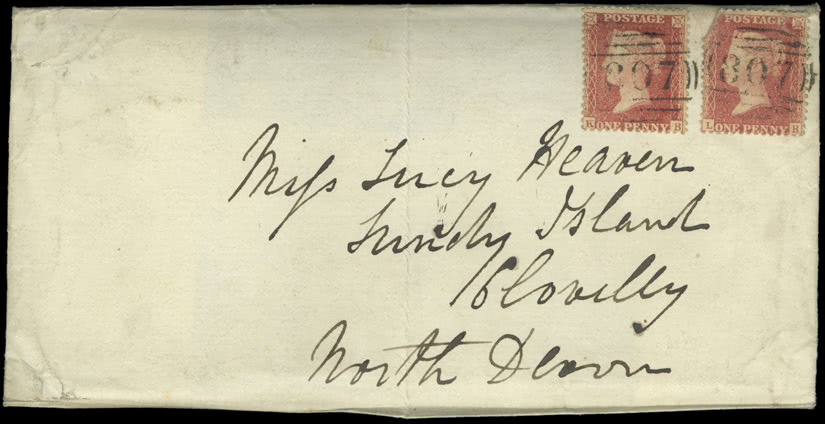 POSTAGE POSTAGE
807 807
K ONE PENNY B L ONE PENNY B
Miss Lucy Heaven
Lundy Island
Clovelly
North Devon